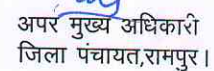 अपर मुख्य अधिकारी
जिला पंचायत,रामपुर।